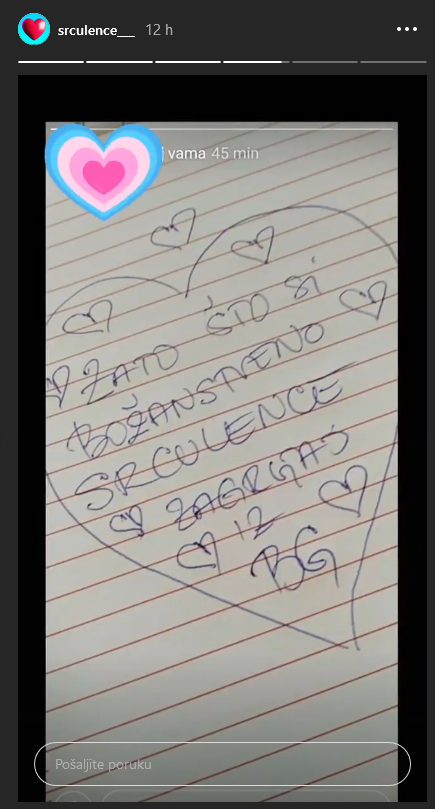 srculence___ 12 h
j vama 45 min
ŠTO SI
ZATO
BOŽANSTVENO
SRCULENCE
ZAGRLJAJ
IZ
BG
Pošaljite poruku